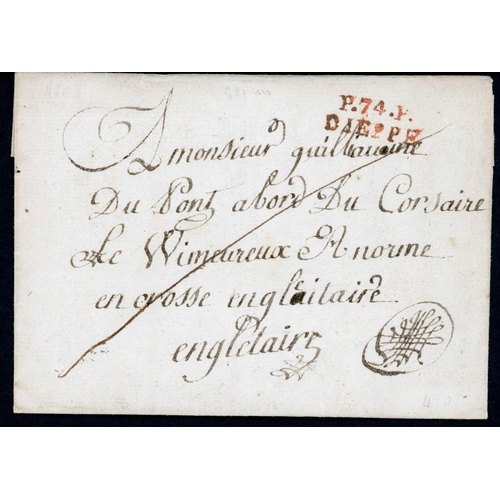 P.74.P.
DIEPPE
A monsieur guillaume
Du Pont abord Du Corsaire
Le Wimeureux A norme
en crosse englaitaire
englétaire